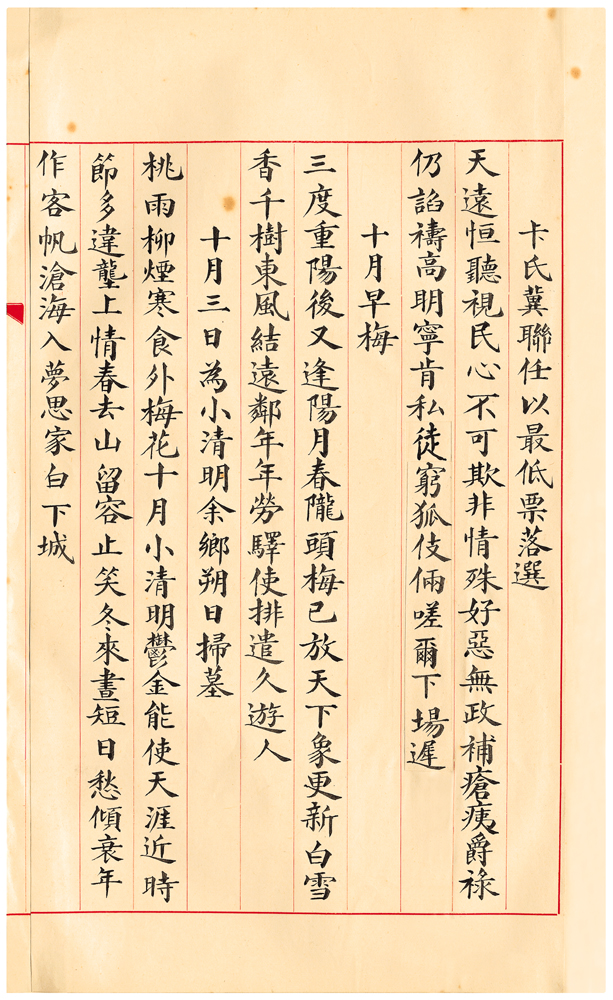 卡氏冀聯任以最低票落選
天遠恒聽視民心不可欺非情殊好惡無政補瘡痍爵祿
仍諂禱高明寧肯私徒窮狐伎倆嗟爾下場遲
十月早梅
三度重陽後又逢陽月春隴頭梅已放天下象更新白雪
香千樹東風結遠鄰年年勞驛使排遣久遊人
十月三日為小清明余鄉朔日掃墓
桃雨柳煙寒食外梅花十月小清明鬱金能使天涯近時
節多違壟上情春去山留容止笑冬來晝短日愁傾衰年
作客帆滄海入夢思家白下城